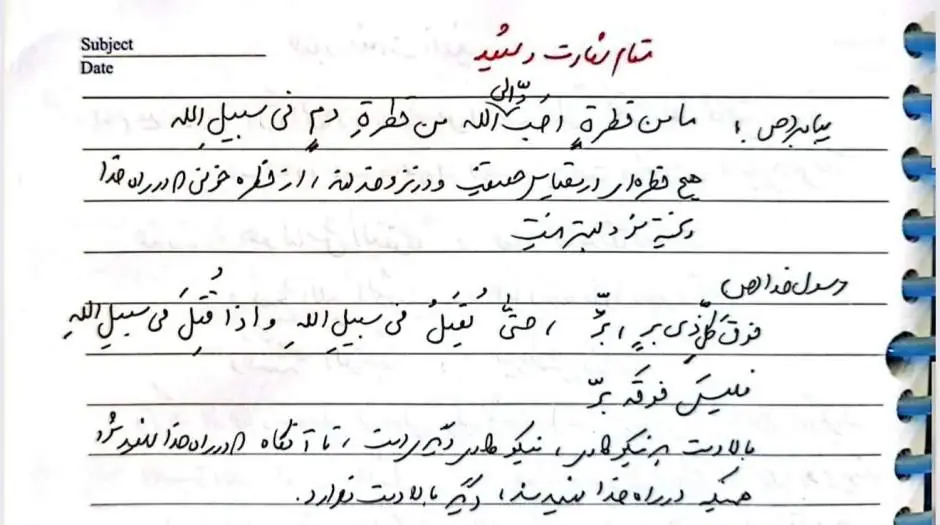 Subject
Date
مقام شهادت و شهید
پیامبر(ص) : ما من قطرةٍ اَحَبُّ اِلی الله من قطرةِ دمٍ فی سبیلِ الله
هیچ قطره‌ای در مقیاس حقیقت و در نزد خدا ، از قطره خونی که در راه خدا
ریخته شود بهتر نیست
رسول خدا(ص)
فوقَ کلِّ ذِی برٍ ، برٌّ ، حتّیٰ یُقتَلُ فی سبیلِ اللهِ و اذا قُتِلَ فی سبیلِ اللهِ
فلیسَ فوقَه برٌّ
بالادست هر نیکوکاری ، نیکوکار دیگری است ، تا آنگاه که در راه خدا شهید شود
همینکه در راه خدا شهید شد ، دیگر بالادست ندارد .